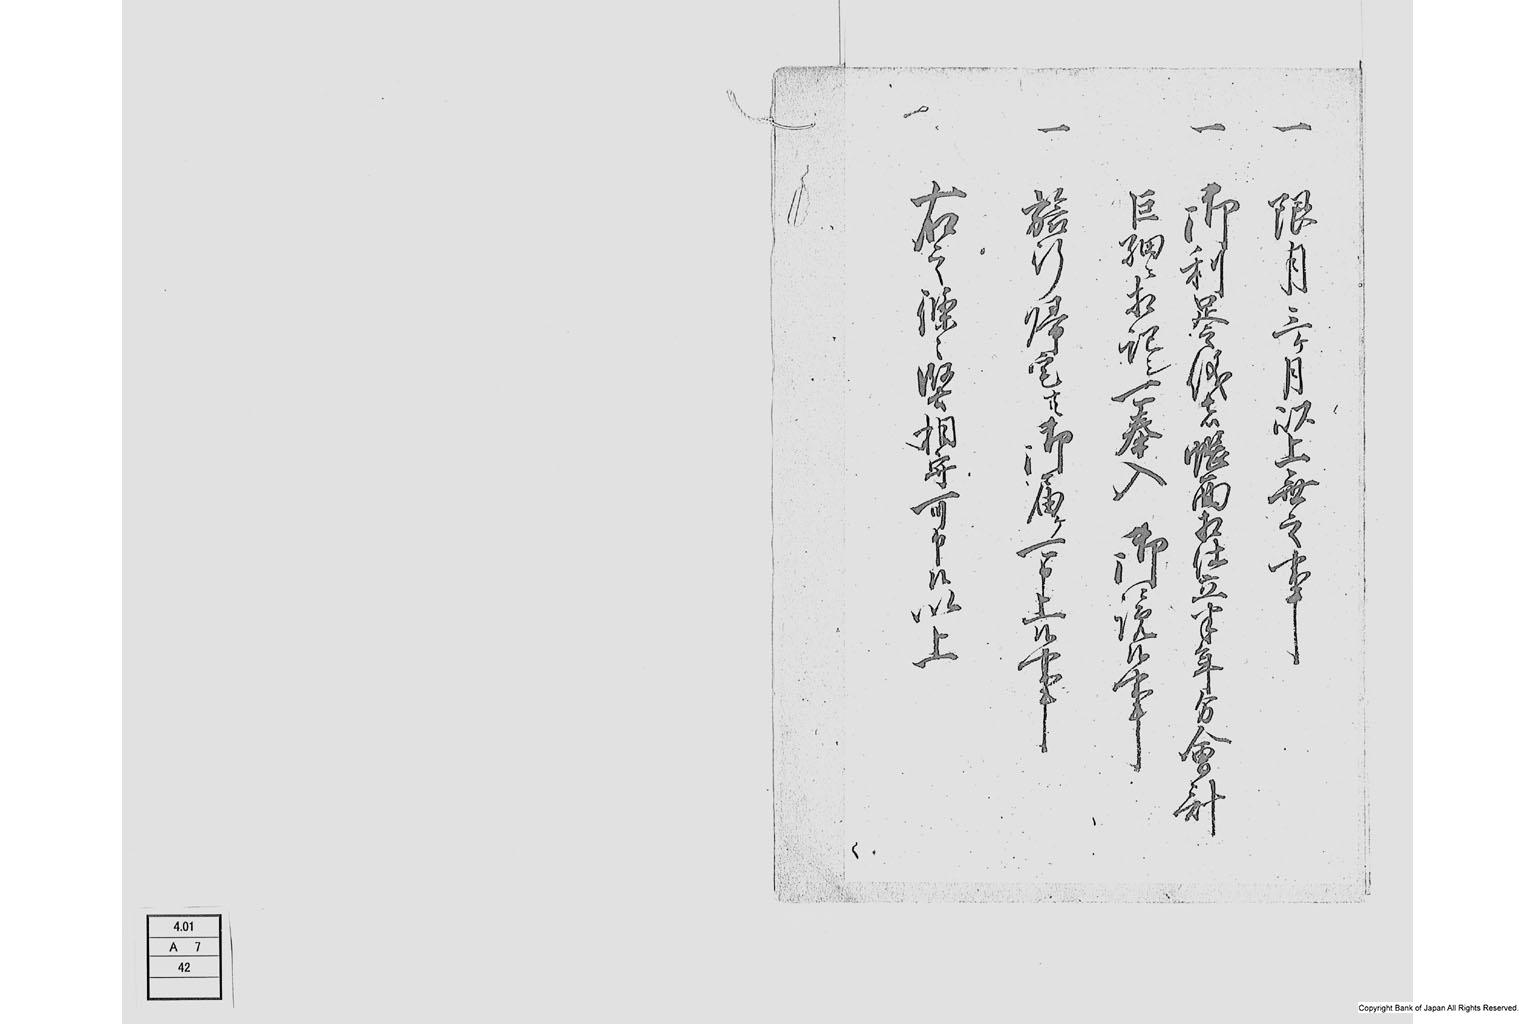 一 限月三ヶ月以上無之事
一 御利足金儀者帳面相仕立半年分會計
巨細ニ相記シ可奉入 御覧候事
一 旅行帰宅共御届ケ可申上候事
一 右之條々堅相守可申候以上
4.01
A 7
42
Copyright Bank of Japan All Rights Reserved.